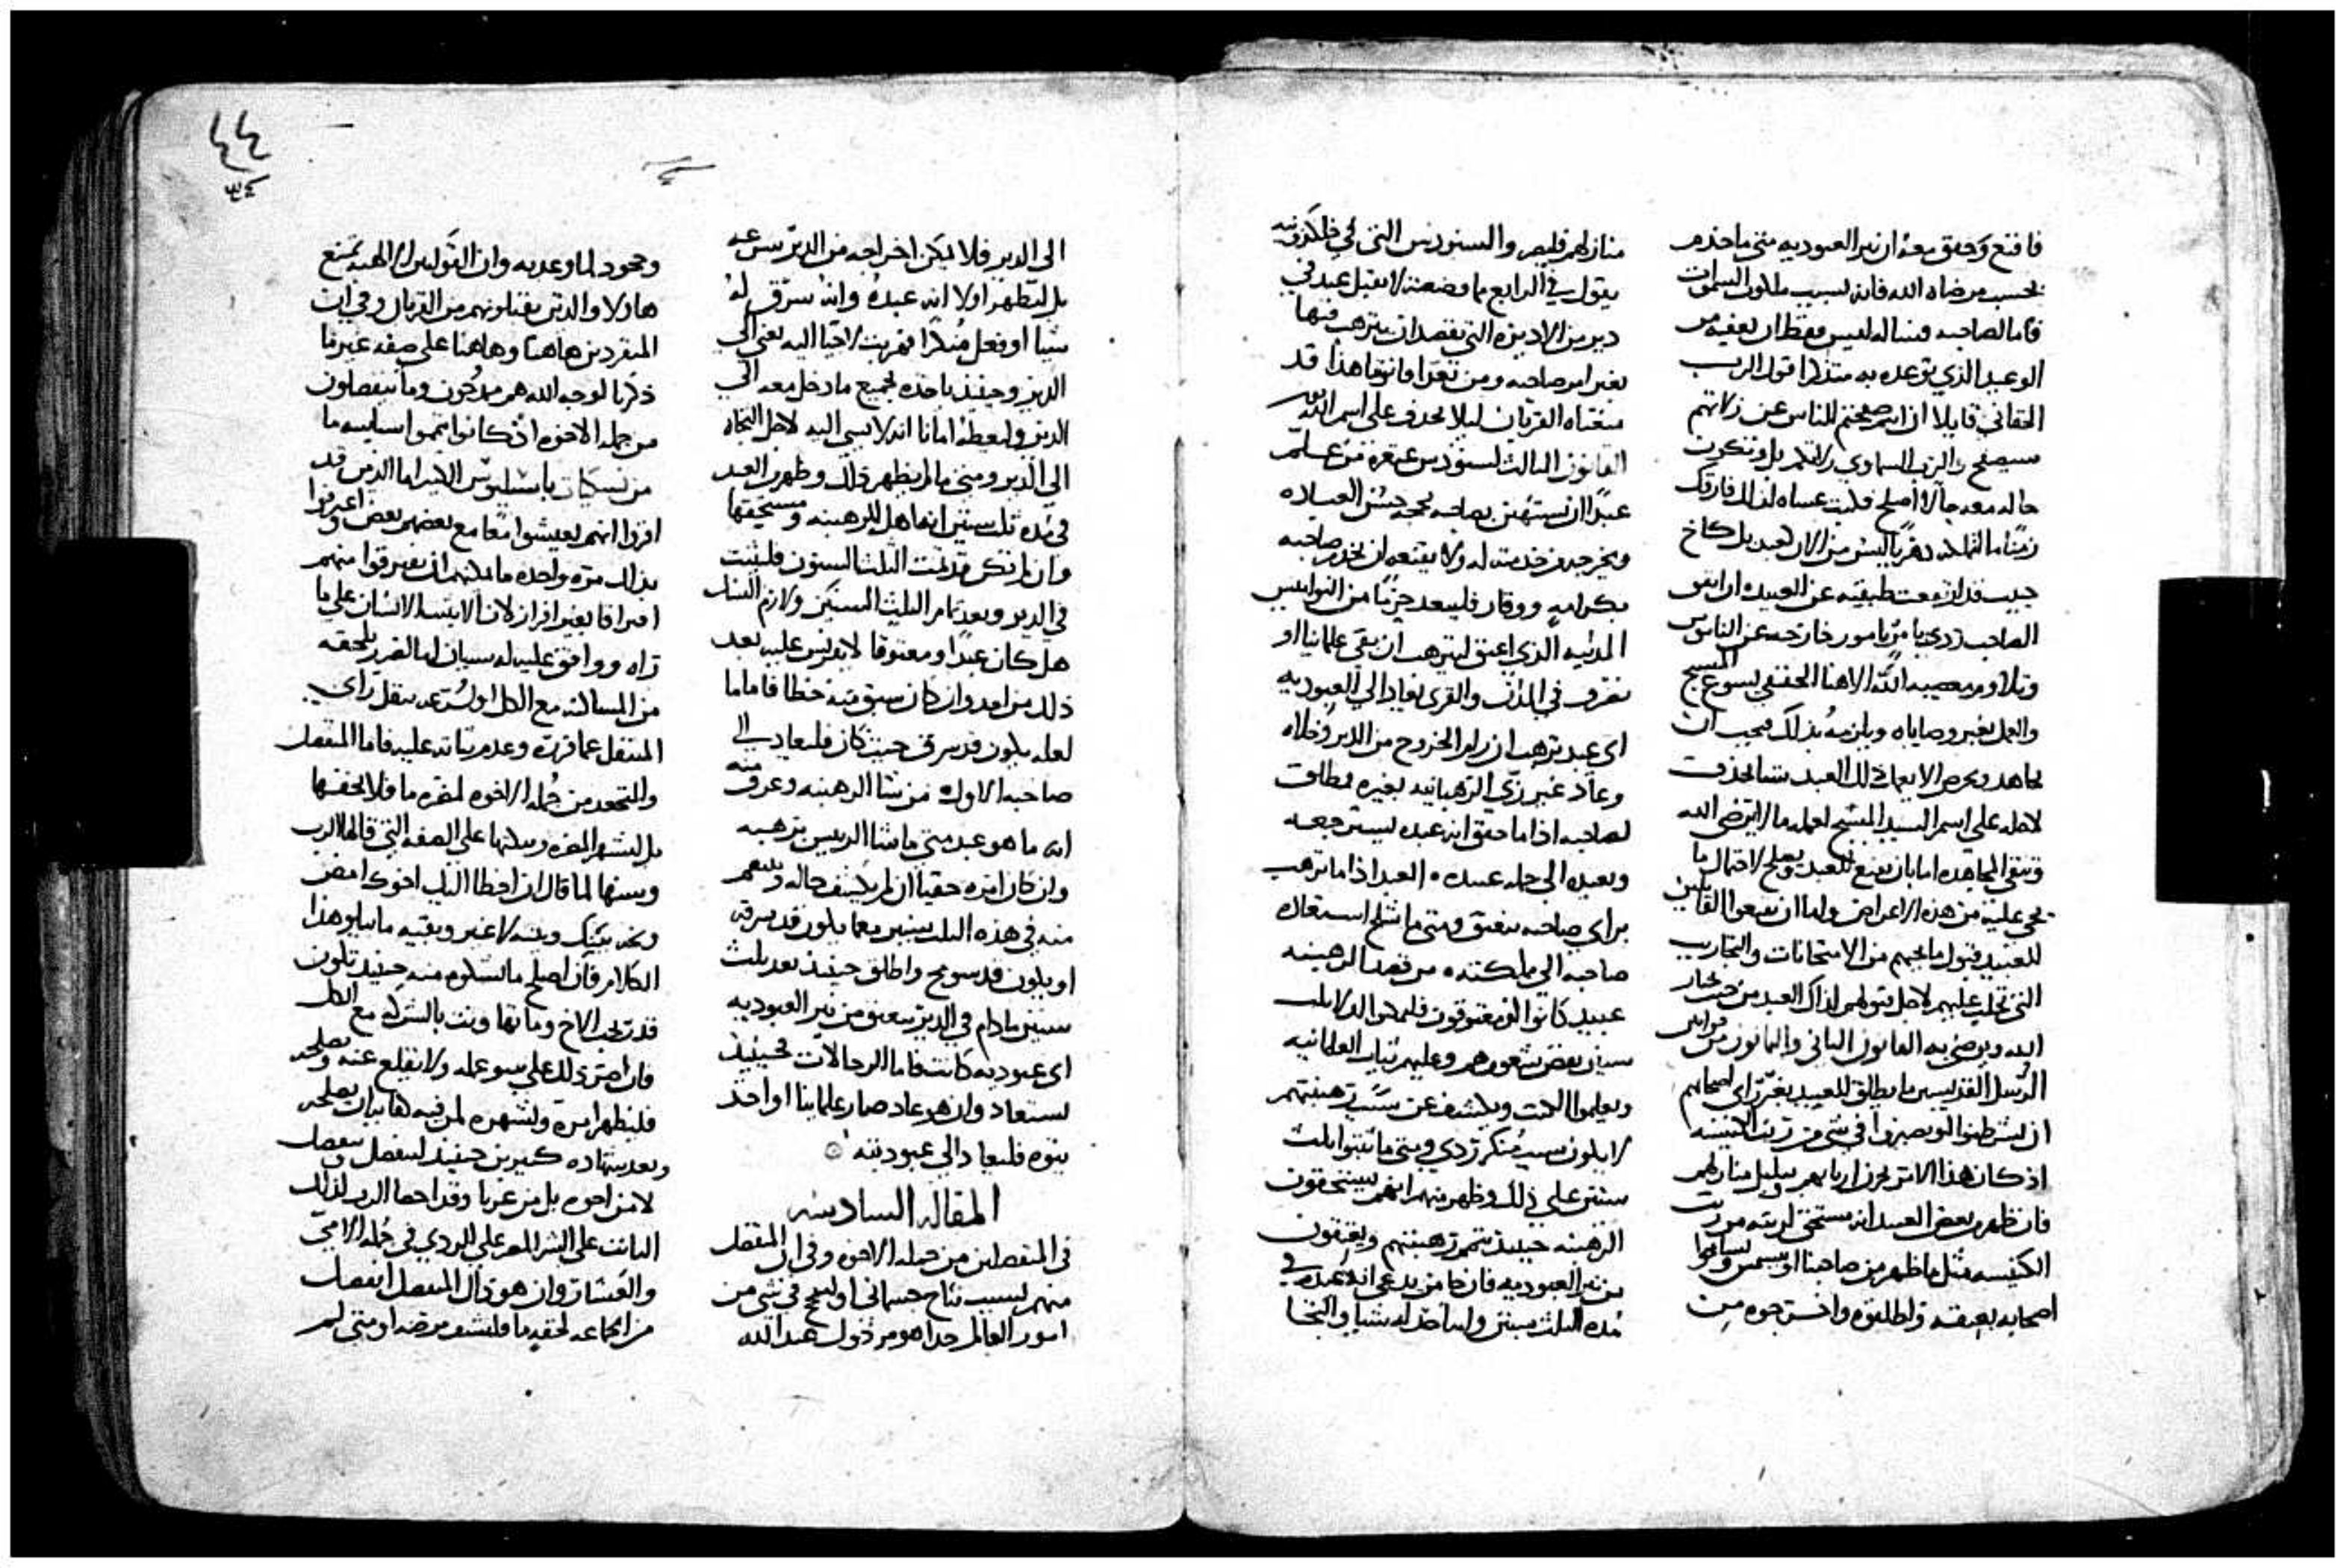 فاقنع وحقق معه ان نير العبوديه متي ما خدم
بحسب مرضاه الله فانه يسبب ملكوت السموات
فاما لصاحبه فساله ليس فقط ان يعفيه من
الوعيد الذي توعده به متذكرا قول الرب
الحقاني قايلا ان انتم صفحتم للناس عن زلاتهم
سيصفح الرب السماوي زلاتكم بل وتكون
حاله معه حالا اصلح فليت عساه لذلك فارقك
زمنا ما لتملكه دهريا ليس من الان كعبد بل كاخ
حبيب قد ارتفعت طبقته عن العبيد وان اتفق
الصاحب ردي يامر بامور خارجه عن الناموس
وتلاوم معصيه الله الاهنا الحقيقي يسوع المسيح
والعمل بغير وصاياه ويلزمه بذلك فيجب ان
يجاهد ويحرص الا يعمل ذلك العبد شيا يجدف
لاجله علي اسم السيد المسيح لعمله ما لا يرضي الله
وتبقي المجاهده اما بان يصنع للعبد ويصلح لاحتمال ما
يجي عليه من هذه الاعراض واما ان يتبعوا القابلين
للعبيد قبول ما يجيهم من الامتحانات والتجاريب
التي تجلب عليهم لاجل قبولهم لذاك العبد من حيث يختار
الله ويرضي به القانون الثاني والثمانون من قوانين
الرسل القديسين ما يطلق للعبيد بغير راي اصحابهم
ان يشرطنوا او يصيروا في شي من رتب الكنيسه
اذ كان هذا الامر يحزن اربابهم ويبلبل منازلهم
فان ظهر بعض العبيد انه مستحق لرتبه من رتب
الكنيسه مثل ما ظهر من صاحبنا انيسيمس وسامحوا
اصحابه بعتقه واطلقوه واخرجوه من
منازلهم فليصر والسنودس التي في خلكدونيه
يقول في الرابع مما وضعته لا يقبل عبد في
دير من الاديره التي يقصد ان يترهب فيها
بغير امر صاحبه ومن تعدا قانوننا هذا قد
منعناه القربان ليلا يجدف علي اسم الله
القانون الثالث لسنودس غنغره من علم
عبدا ان يستهين بصاحبه بحجه حسن العباده
ويخرجه من خدمته له ولا يقنعه ان يخدم صاحبه
بكرامه ووقار فليبعد جزءا من النواميس
المدنيه الذي اعتق ليترهب ان بقي علمانيا او
تفرق في المدن والقري يعاد الي العبوديه
اي عبد ترهب ان رام الخروج من الدير وخلاه
وعاد غير زي الرهبانيه بغيره فيطلق
لصاحبه اذا ما حقق انه عبده ليسترجعه
ويعيده الي جمله عبيده العبد اذا ما ترهب
براي صاحبه ينعتق ومتي ما شلح استعاده
صاحبه الي ملكته من قصد الرهبنه
عبيد كانوا او معتوقون فليمكثوا اولا ثلث
سنين بعض شعورهم وعليهم ثياب العلمانيه
ويعلموا الكتب ويكشف عن سبب رهبنتهم
لا يكون سبب منكر ردي ومتي ما ثبتوا ثلث
سنين علي ذلك وظهر منهم انهم يستحقون
الرهبنه حينيذ تتم رهبنتهم ويعتقون
من نير العبوديه فان جا من يدعي انه عبده في
مده الثلث سنين وانه اخذ له شيا والتجا
الي الدير فلا يمكن اخراجه من الدير بسرعه
بل ليتظهر اولا انه عبده وانه سرق له
شيا او فعل منكرا فهرب لاجيا اليه يعني الي
الدير وحينيذ ياخذه بجميع ما دخل معه الي
الدير وليعطه امانا انه لا يسي اليه لاجل التجاه
الي الدير ومتي ما لم يظهر ذلك وظهر العبد
في مده ثلث سنين انه اهل للرهبنه ومستحقها
وان لم تكن قد تمت الثلث السنون فليثبت
في الدير وبعد تمام الثلث السنين ولازم النسك
هل كان عبدا او معتوقا لا يعترض عليه بعد
ذلك من احد وان كان سبق منه خطا فاما ما
لعله يكون قد سرق حيث كان فليعاد الي
صاحبه الاول من شا الرهبنه وعرف منه
انه ما هو عبد متي ما شا الرييس يرهبه
وان كان امره خفيا ان لم يكشف حاله ويفهم
منه في هذه الثلث سنين معما يكون قد سرقه
او يكون قد سومح واطلق حينيذ بعد ثلث
سنين ما دام في الدير ينعتق من نير العبوديه
اي عبوديه كانت فاما الرجالات فحينيذ
يستعاد وان هو عاد صار علمانيا او احد
بنوه فليعاد الي عبوديته
المقاله السادسه
في المنفصلين من جمله الاخوه وفي ان المنفصل
منهم لسبب نتاج جسماني او لنجح في شي من
امور العالم جدا هو مرذول عند الله
وجحود لما وعد به وان القوانين الالهيه تمنع
هاولا والذين يقبلونهم من القربان وفي ان
المنفردين هاهنا وهاهنا علي صفه غير ما
ذكرنا لوجه الله هم ممدوحون وما ينفصلون
من جمله الاخوه اذ كانوا تمموا ساير ما
من نسكيات باسيليوس الكبير اما الذين قد
اقروا انهم يعيشوا معا مع بعضهم بعض واعترفوا
بذلك مره واحده ما يمكنهم ان يفترقوا منهم
افتراقا بغير افراز لان الا يثبت الانسان علي ما
راه ووافق عليه له سببان اما لضرر يلحقه
من المساكنه مع الكل او لسرعه تنقل راي
المنتقل عما قرره وعدم ثباته عليه فاما المنفصل
والمتبعد من جمله الاخوه لمضره ما فلا يخفيها
بل ليشهر المضره ويبكتها علي الصفه التي قالها الرب
وسنها لما قال ان اخطا اليك اخوك امض
وبخه بينك وبينه لا غير وبقيه ما يتلو هذا
الكلام فان اصلح ما نشكوه منه حينيذ تكون
قد ربحت الاخ وما نقضت بالشركه مع الكل
فان اصر ذلك علي سو عمله ولا يقلع عنه ويصلحه
فليظهر امره وليشهره لمن فيه كفايه ان يصلحه
وبعد شهاده كثيرين حينيذ لينفصل وينفصل
لا من اخوه بل من غربا وقد احصا الرب لذلك
الثابت علي الشر المصر علي الردي في جمله الاممي
والعشار وان هو قال المنفصل انفصل
من الجماعه لحقد ما فليشف مرضه او متي لم